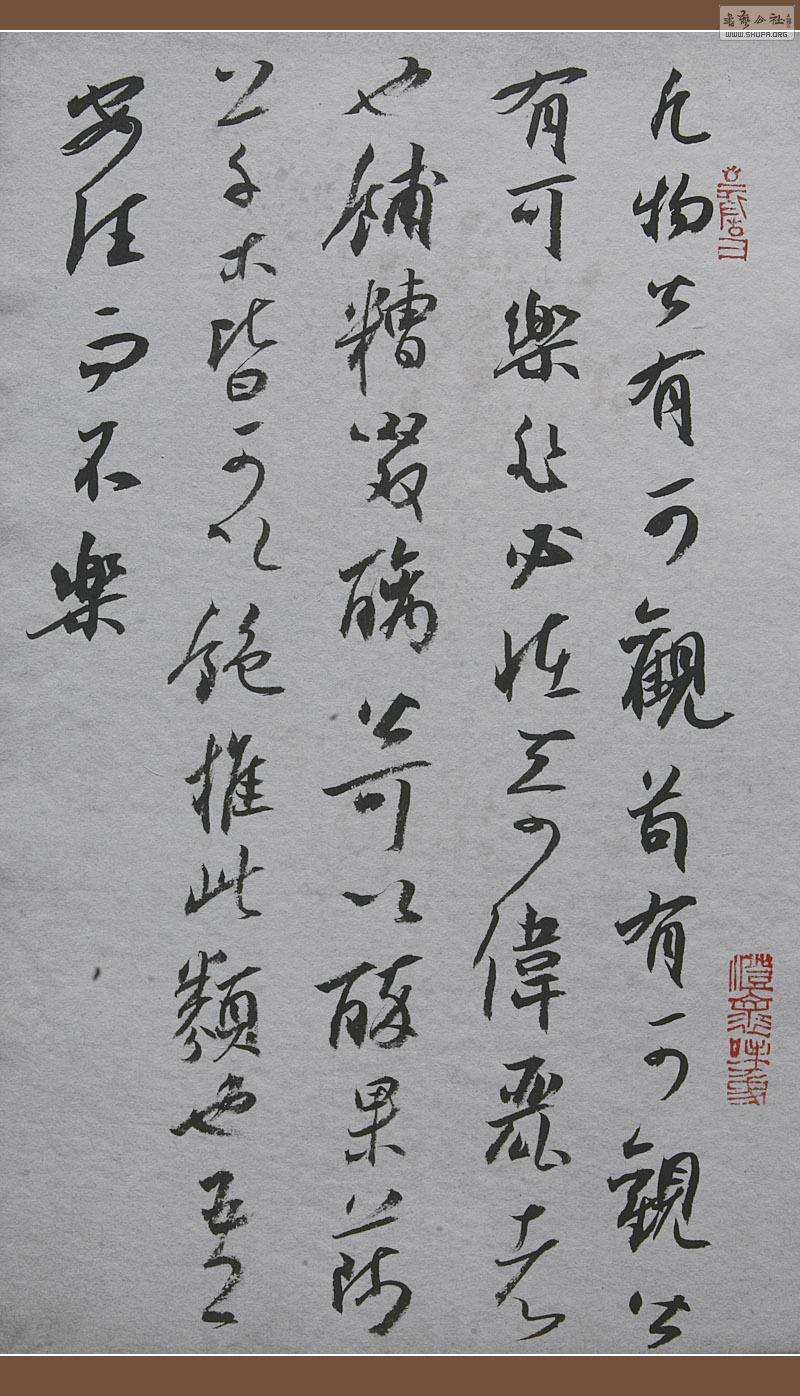 凡物皆有可觀苟有可觀皆
有可樂非必怪奇偉麗者
也餔糟啜醨皆可以醉果蔬
草木皆可以飽推此類也吾
安往而不樂
書藝公社
WWW.SHUFA.ORG